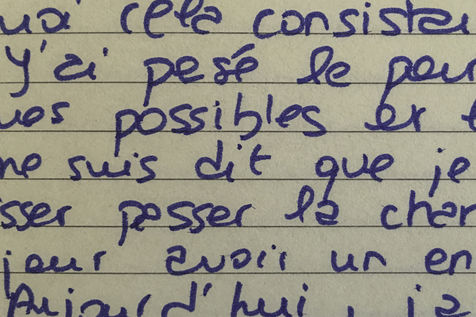 uoi cela consistai
J'ai pesé le pour
ues possibles et
me suis dit que je
sser passer la chan
jour avoir un en
Aujourd'hui, ja